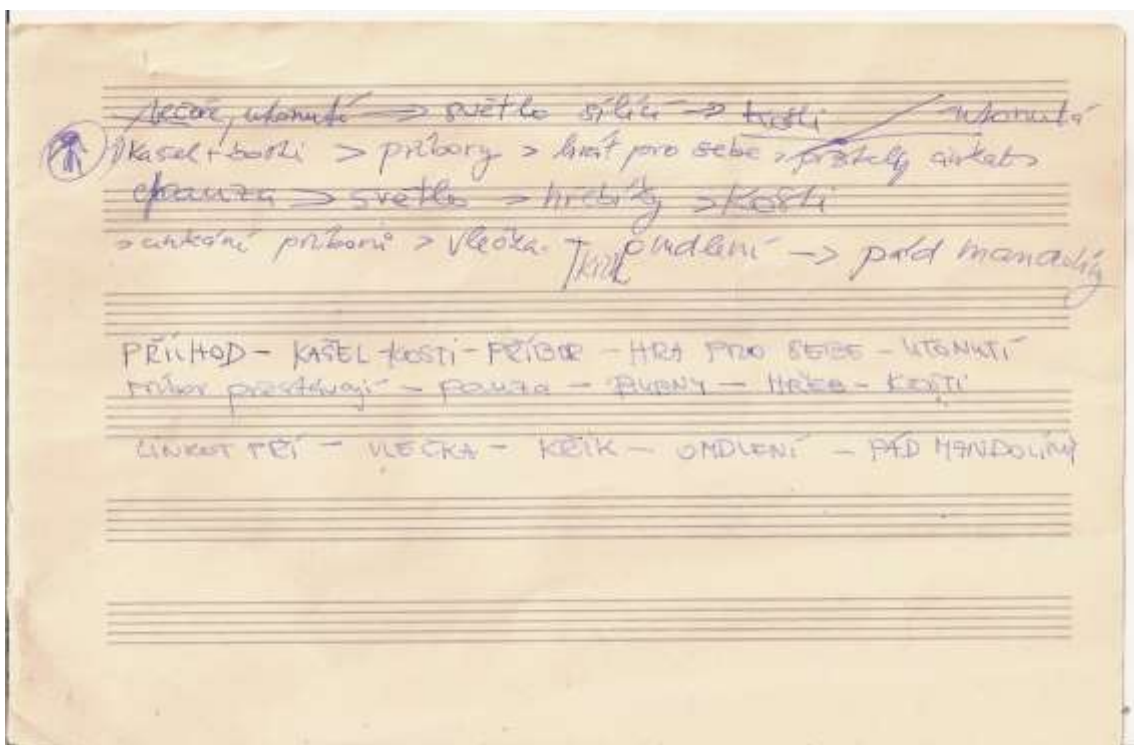 světlo sílící → utonutá
kašel + kosti > příbory > hrát pro sebe > přestaly cinkat >
pauza > světlo > hřebíky > kosti
> cinkání příborů > vlečka. křik omdlení → pád mandolíny
PŘÍCHOD - KAŠEL - KOSTI - PŘÍBOR - HRA PRO SEBE - UTONUTÍ
příbor přestávají - pauza - BUBNY - HŘEB - KOSTI
CINKOT PŘÍ - VLEČKA - KŘIK - OMDLENÍ - PÁD MANDOLÍNY